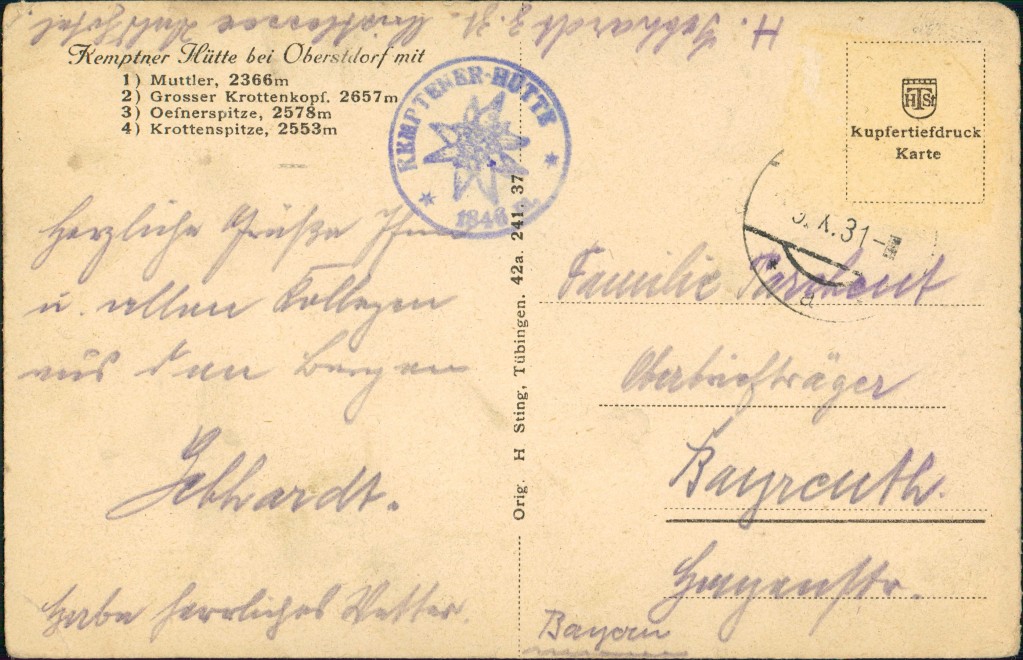 H. Gebhardt z. Zt.
Kemptner Hütte bei Oberstdorf mit
1) Muttler, 2366m
2) Grosser Krottenkopf. 2657m
3) Oefnerspitze, 2578m
4) Krottenspitze, 2553m
KEMPTENER-HÜTTE
1846 m
HTSt
Kupfertiefdruck
Karte
X.31-
a
Herzliche Grüße Ihnen
u. allen Kollegen
aus den Bergen
Gebhardt.
Habe herrliches Wetter.
Orig. H Sting, Tübingen. 42a. 241. 37
Familie
Oberbriefträger
Bayreuth.
Hagenstr.
Bayern